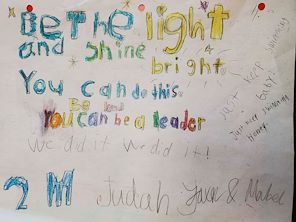 BE THE light
and shine
bright
You can do this
Be kind
You can be a leader
We did it We did it!
JUST KEEP swimming
baby
Just keep swimming
Honey
2 M Judah Jaxx & Mabel